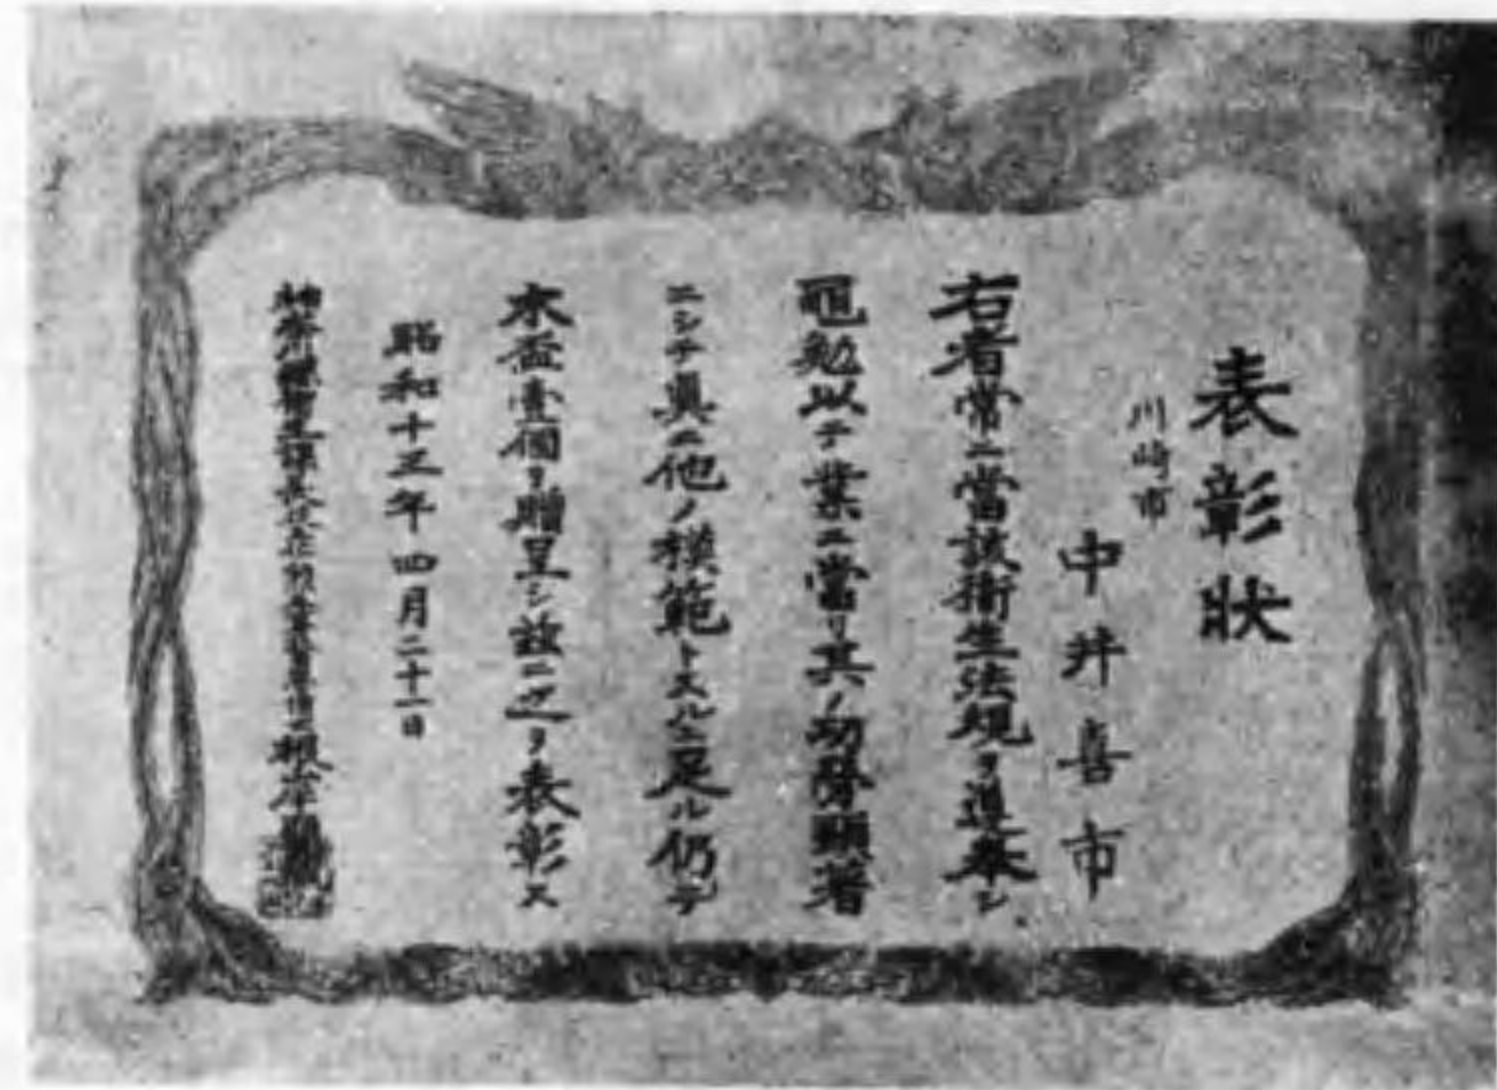 表彰状
川崎市
中井喜市
右者常ニ當該衛生法規ヲ遵奉シ
黽勉以テ業ニ當リ其ノ功勞顯著
ニシテ眞ニ他ノ模範トスルニ足ル仍テ
木盃壹個ヲ贈呈シ茲ニ之ヲ表彰ス
昭和十五年四月二十一日